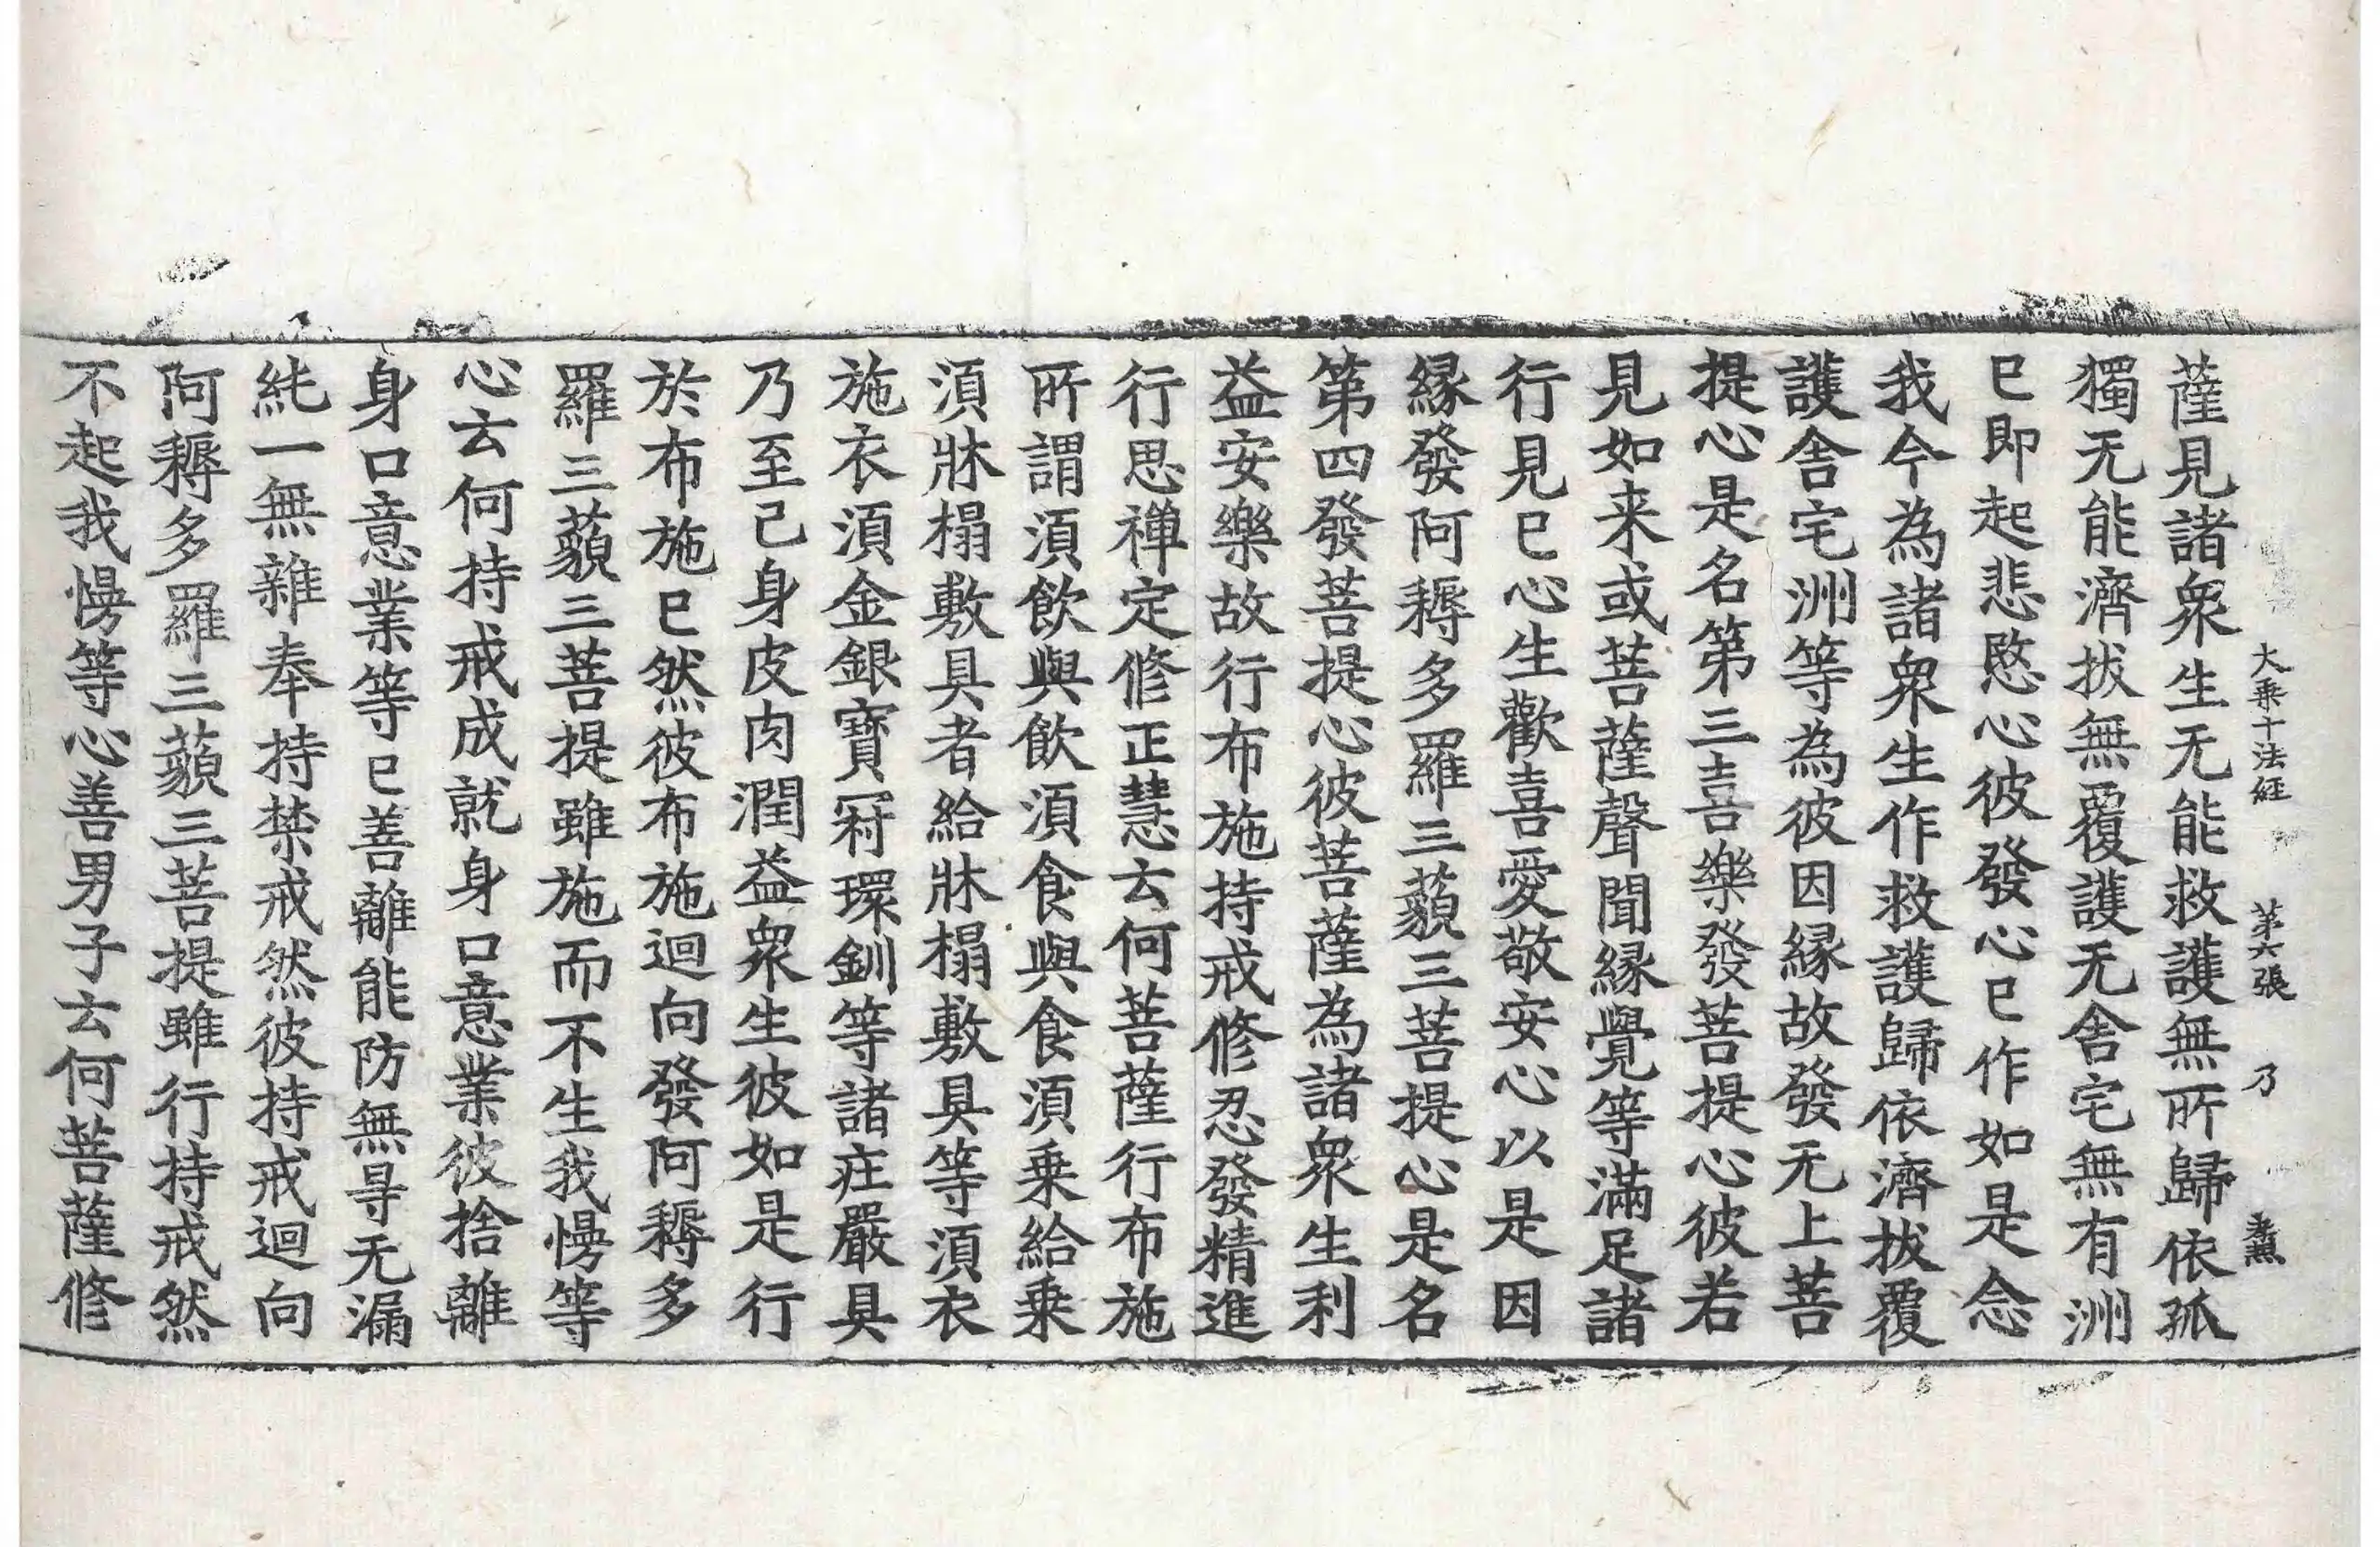 大乘十法経 第六張 乃
薩見諸衆生无能救護無所歸依孤
獨无能濟拔無覆護无舍宅無有洲
已即起悲愍心彼發心已作如是念
我今為諸衆生作救護歸依濟拔覆
護舍宅洲等為彼因縁故發无上菩
提心是名第三喜樂發菩提心彼若
見如来或菩薩聲聞縁覺等滿足諸
行見已心生歡喜愛敬安心以是因
縁發阿耨多羅三藐三菩提心是名
第四發菩提心彼菩薩為諸衆生利
益安樂故行布施持戒修忍發精進
行思禪定修正慧云何菩薩行布施
所謂湏飲與飲湏食與食湏乗給乗
湏牀榻敷具者給牀榻敷具等湏衣
施衣湏金銀寶冠環釧等諸庄嚴具
乃至己身皮肉潤益衆生彼如是行
於布施已然彼布施迴向發阿耨多
羅三藐三菩提雖施而不生我慢等
心云何持戒成就身口意業彼捨離
身口意業等已善離能防無㝵无漏
純一無雜奉持禁戒然彼持戒迴向
阿耨多羅三藐三菩提雖行持戒然
不起我慢等心善男子云何菩薩修